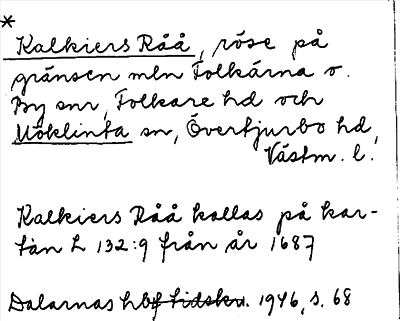 *
Kalkiers Råå, röse på
gränsen mln Folkärna o.
By snr, Folkare hd och
Möklinta sn, Övertjurbo hd,
Västm. l.
Kalkiers Råå kallas på kar-
tan L 132:9 från år 1687
Dalarnas hbf tidskr. 1946, s. 68